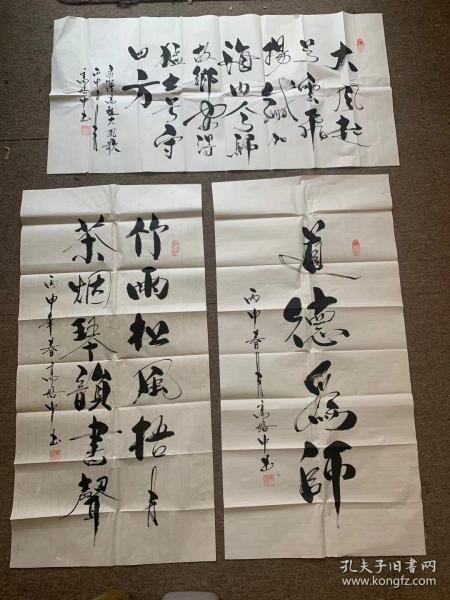 大風起
兮雲飛
揚威加
海内兮歸
故鄉安得
猛士兮守
四方
丙申年
竹雨松風梧月
茶烟琴韻書聲
丙申年春高培中书
道德為師
丙申春月高培中书
孔夫子旧书网
www.kongfz.com